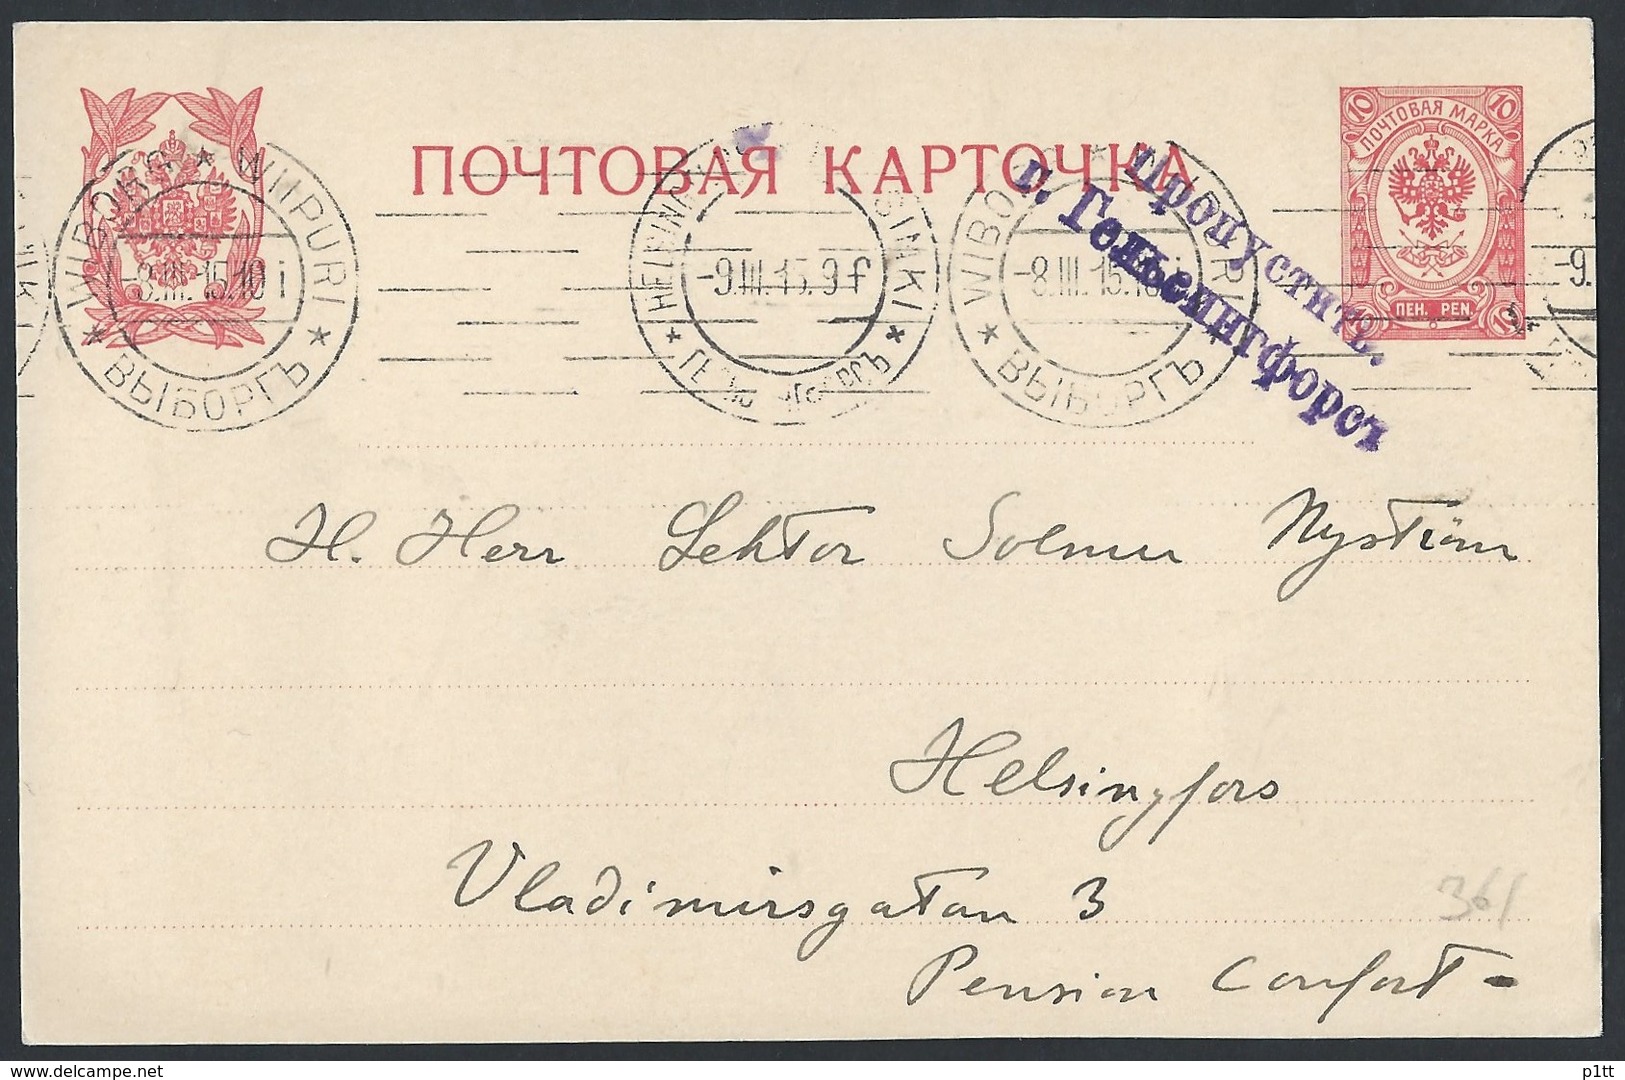 ПОЧТОВАЯ КАРТОЧКА
10 ПОЧТОВАЯ МАРКА 10
ПЕН. PEN.
WIBORG ★ WIIPURI ★ ВЫБОРГЪ ★
-8.III.15.10 i
-9.III.15.9 f
-8.III.15.10 i
-9.
Пропустить.
г. Гельсингфорсъ
H. Herr Lektor Solmu Nyström
Helsingfors
Vladimirsgatan 3
Pension Comfort -
361
delcampe.net
p1tt